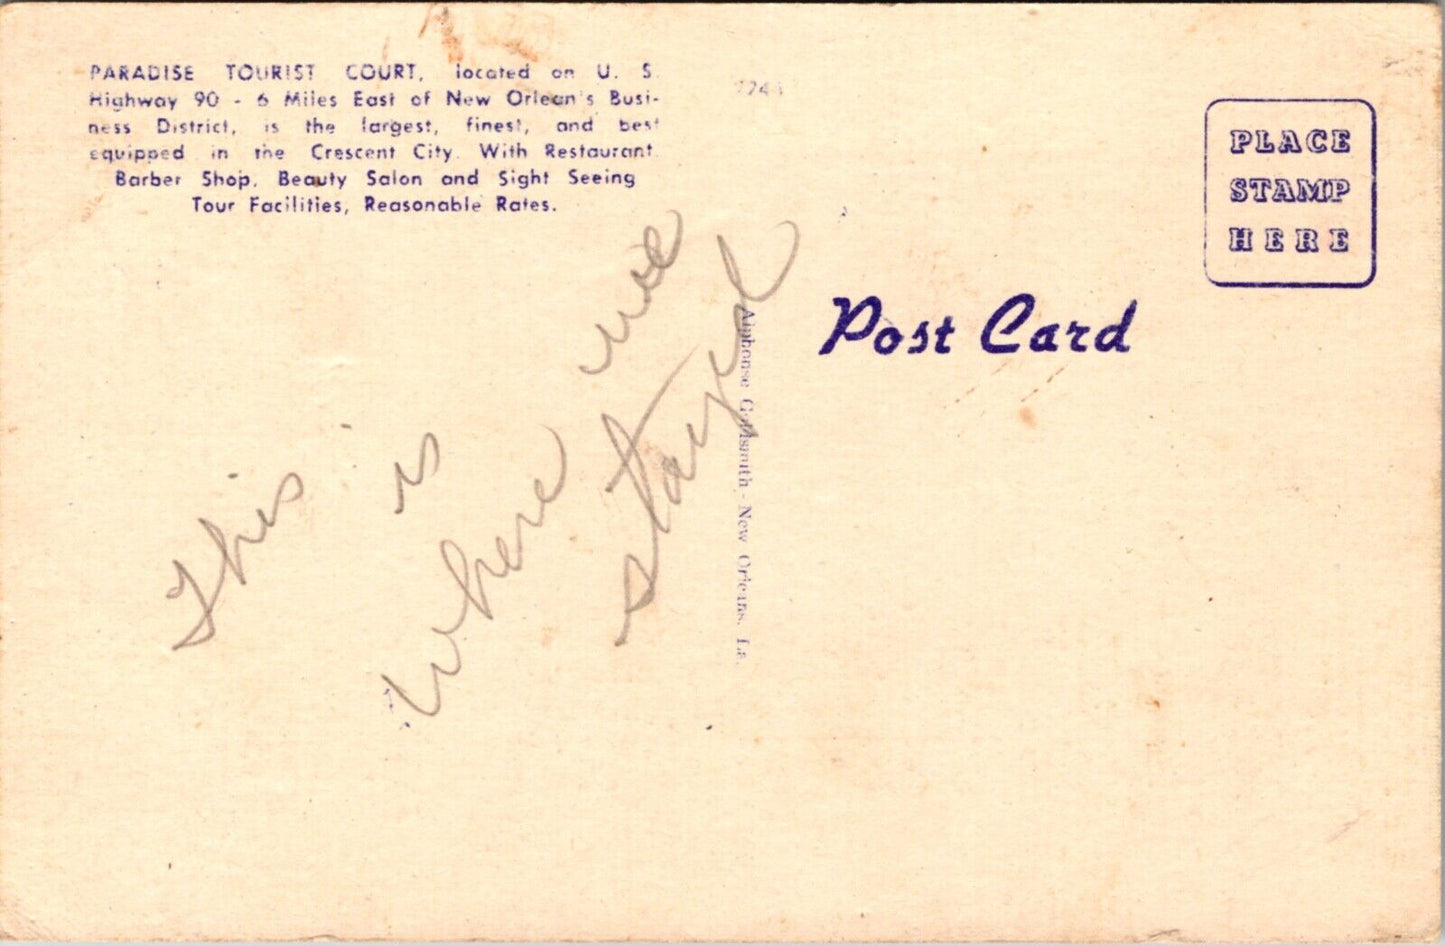 PARADISE TOURIST COURT, located on U. S.
Highway 90 - 6 Miles East of New Orlean's Busi-
ness District, is the largest, finest, and best
equipped in the Crescent City. With Restaurant.
Barber Shop, Beauty Salon and Sight Seeing
Tour Facilities, Reasonable Rates.
This is
where we
stayed
Alphonse Goldsmith - New Orleans, La.
Post Card
PLACE
STAMP
HERE